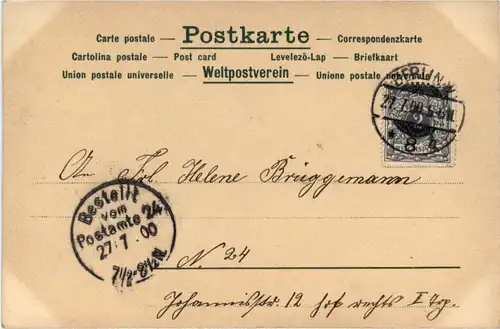 Carte postale — Postkarte — Correspondenzkarte
Cartolina postale — Post card Levelező-Lap — Briefkaart
Union postale universelle — Weltpostverein — Unione postale universale
BERLIN
27.7.00
* 8 *
An Frl. Helene Brüggemann
Bestellt
vom
Postamte 24
27.7.00
7½-8½N.
N. 24
Johannisstr. 12 hof rechts I Trp.